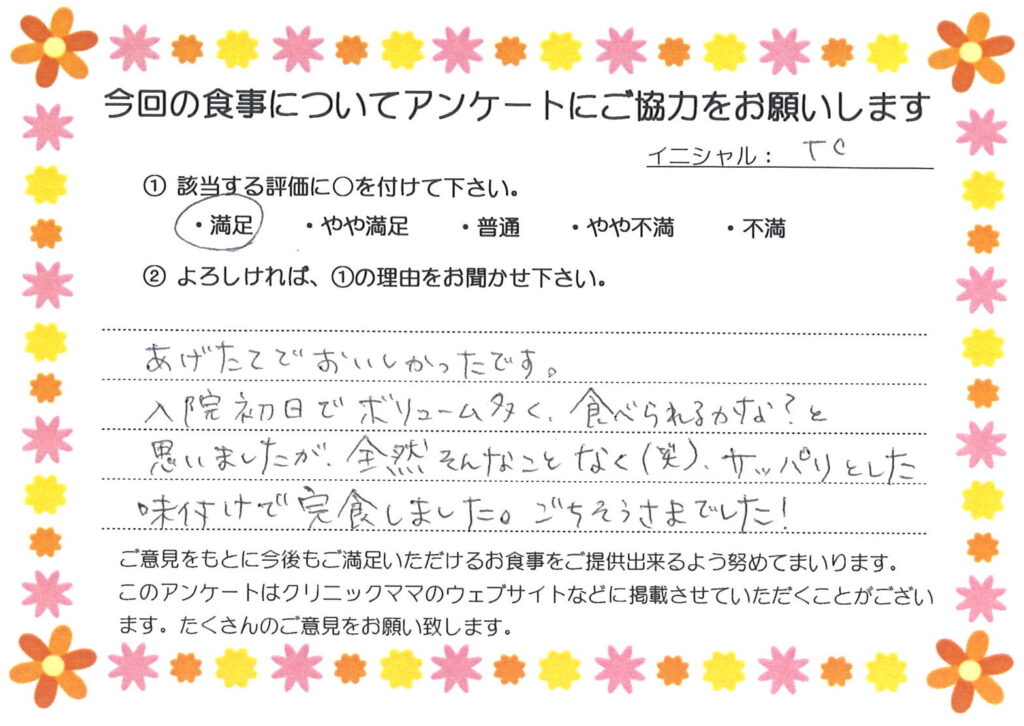 今回の食事についてアンケートにご協力をお願いします
イニシャル： TC
① 該当する評価に〇を付けて下さい。
・満足 ・やや満足 ・普通 ・やや不満 ・不満
② よろしければ、①の理由をお聞かせ下さい。
あげたてでおいしかったです。
入院初日でボリューム多く、食べられるかな？と
思いましたが、全然そんなことなく(笑)、サッパリとした
味付けで完食しました。ごちそうさまでした！
ご意見をもとに今後もご満足いただけるお食事をご提供出来るよう努めてまいります。
このアンケートはクリニックママのウェブサイトなどに掲載させていただくことがござい
ます。たくさんのご意見をお願い致します。